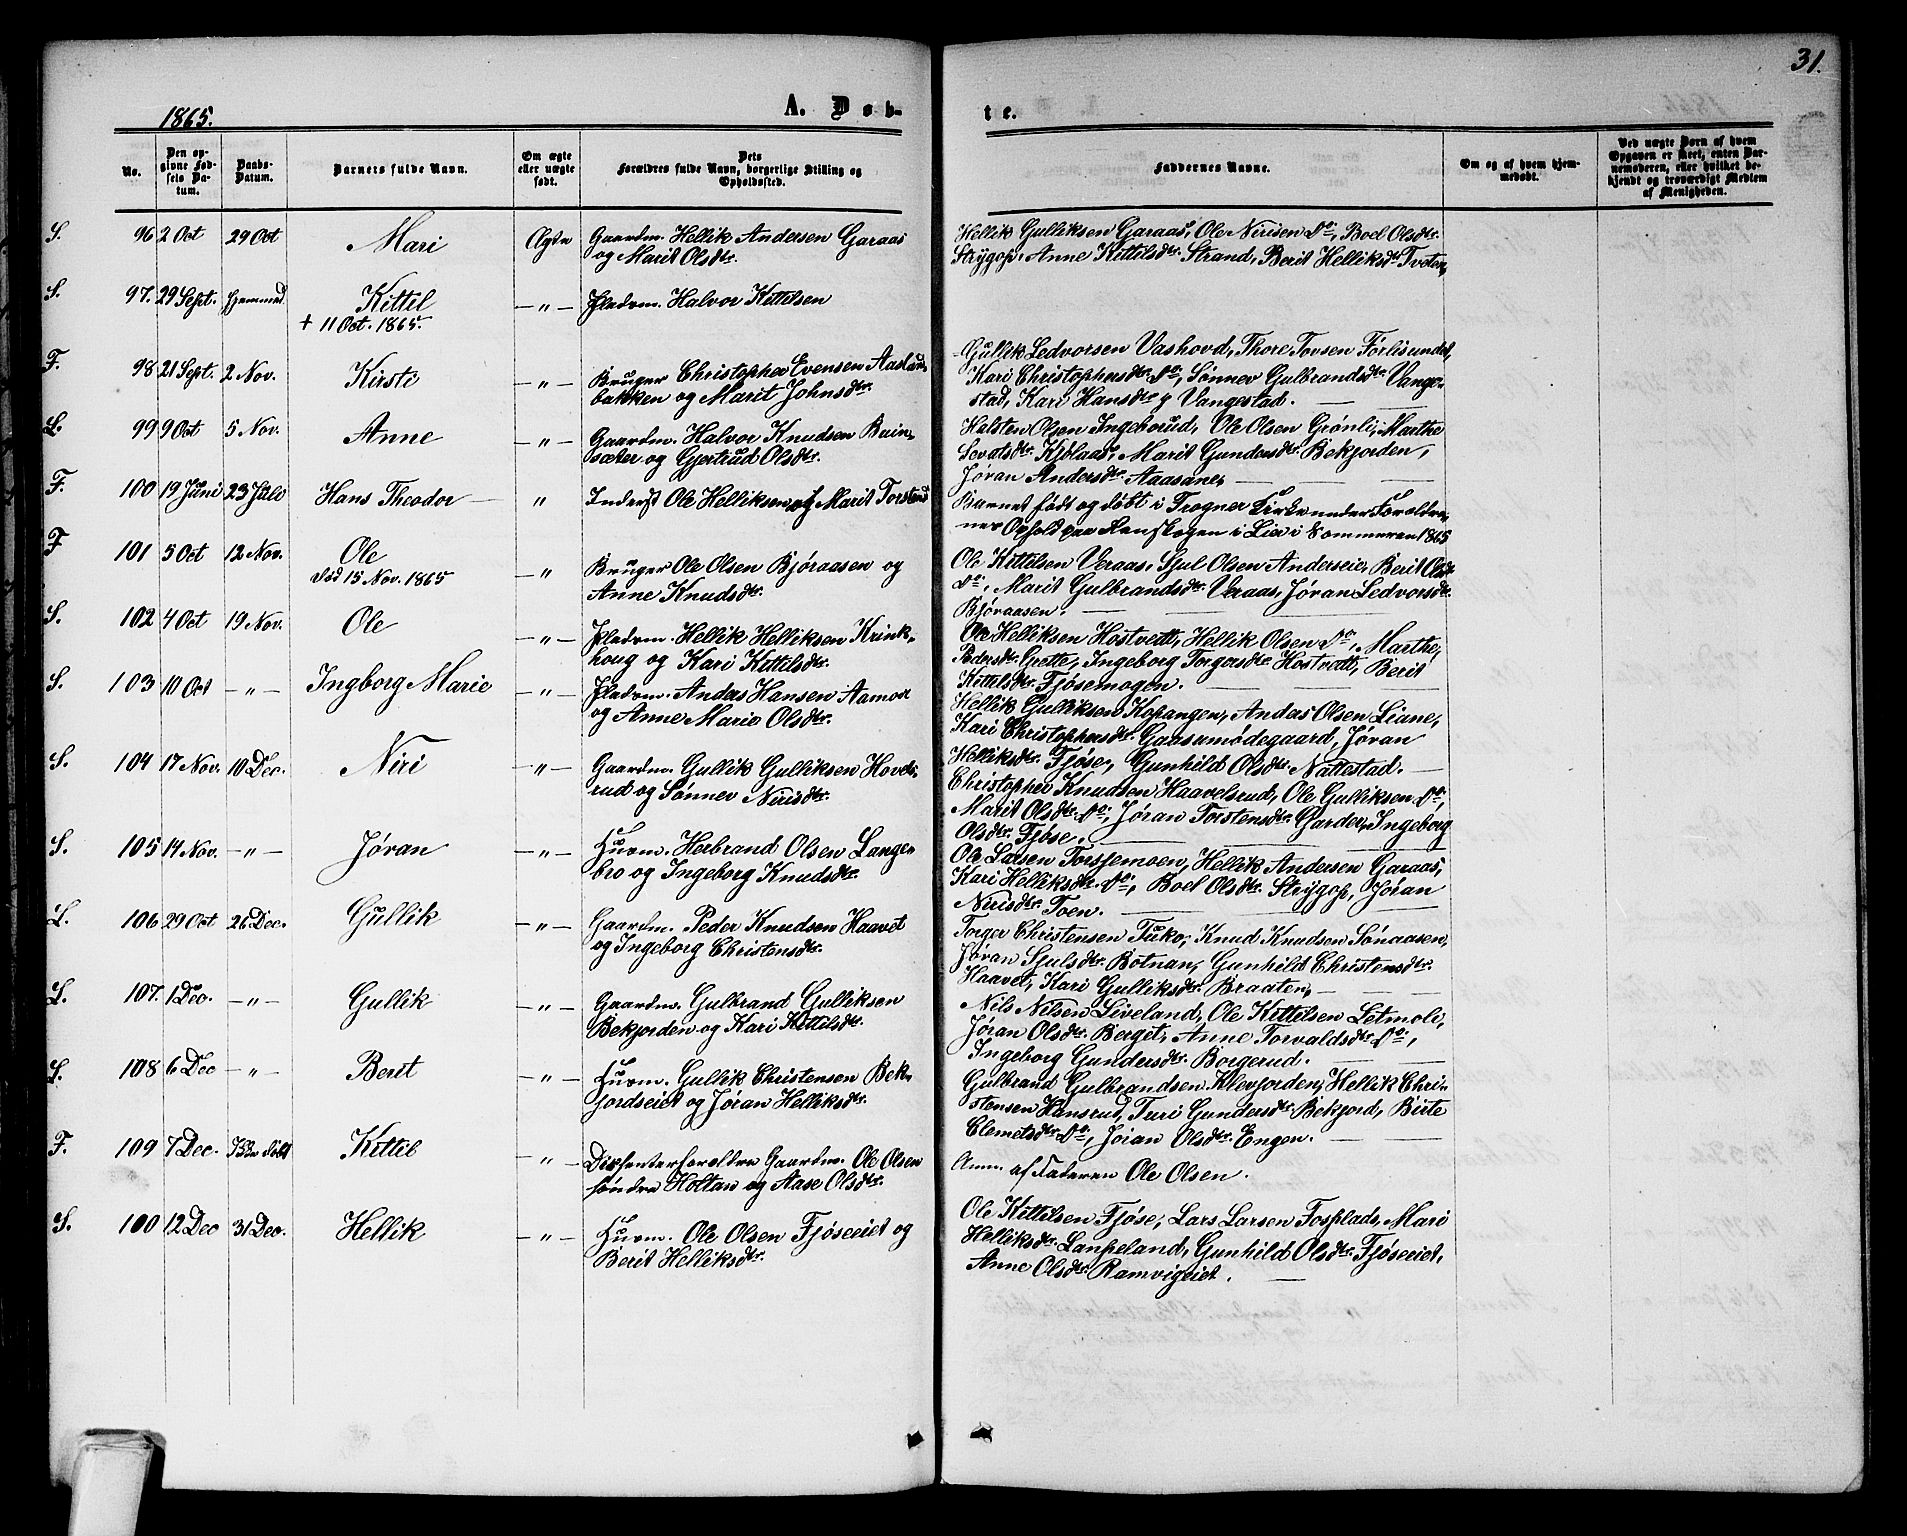 31.
1865.
A. Døb-
te.
No.
Den opgivne Fødsels Datum.
Daabs-Datum.
Barnets fulde Navn.
Om ægte eller uægte født.
Dets Forældres fulde Navn, borgerlige Stilling og Opholdssted.
Faddernes Navne.
Om og af hvem hjemmedøbt.
Ved uægte Børn af hvem Opgaven er skeet, enten Barnemoderen, eller hvilket bekjendt og troværdigt Medlem af Menigheden.
S. 96 2 Oct 29 Oct Mari Ægte Gaardm. Hellik Andersen Garaas
og Marit Olsdtr.
Hellik Gulliksen Garaas, Ole Nirisen Do, Boel Olsdtr.
Strygop, Anne Kittilsdtr. Strand, Berit Helliksdtr Tveten
S. 97. 29 Sept. hjemmed. Kittil — " — Pladsm. Halvor Kittilsen
+ 11 Oct. 1865.
F. 98 21 Sept. 2 Nov. Kirsti — " — Bruger Christopher Evensen Aaslands
bakken og Marit Johnsdtr.
Gullik Ledvorsen Vashovd, Thore Tovsen Førlisundet,
Kari Christophersdtr. Do, Sønnev Gulbrandsdtr. Vange-
stad, Kari Hansdtr y Vangestad.
L. 99 9 Oct 5 Nov. Anne — " — Gaardm. Halvor Knudsen Buin-
sæter og Gjertrud Olsdtr.
Halsten Olsen Ingeborud, Ole Olsen Grønli, Marthe
Kjølaas, Marit Gundersdtr. Bekjorden,
Jøran Andersdtr. Aaasane,
F. 100 19 Juni 23 Julo Hans Theodor — " Inderst Ole Helliksen og Marit Torstensd
Barnet født og døbt i Frogner Kirke under Foreldre-
nes Ophold paa i Lier i Sommeren 1865
F 101 5 Oct 12 Nov. Ole — " Bruger Ole Olsen Bjøraasen og
død 15 Nov. 1865
Anne Knudsdtr.
Ole Kittilsen Veraas, Sjul Olsen Anderseie, Berit Olsdtr
Do, Marit Gulbrandsdtr. Veraas, Jøran Ledvorsdtr.
Bjøraasen.
S. 102 4 Oct 19 Nov. Ole — " — Pladsm. Hellik Helliksen Krink-
houg og Kari Kittilsdtr.
Ole Helliksen Hostvedt, Hellik Olsen Do, Marthe
Pedersdtr. Grette, Ingeborg Torgersdtr. Hostvedt, Berit
Kittilsdtr. Fjøsemogen.
S. 103 10 Oct — " — Ingborg Marie — " — Pladsm. Anders Hansen Aamot
og Anne Marie Olsdtr.
Hellik Gulliksen Kopangen, Anders Olsen Liane,
Kari Christophersdtr. Gaasemødegaard, Jøran
Helliksdtr. Fjøse, Gunhild Olsdtr. Nattestad.
S. 104 17 Nov. 10 Dec. Niri — " — Gaardm. Gullik Gulliksen Hovels-
rud og Sønnev Nirisdtr.
Christopher Knudsen Haavelsrud, Ole Gulliksen Do,
Marit Olsdtr. Do, Jøran Torstensdtr. Garder, Ingeborg
Olsdtr. Fjøse.
S. 105 14 Nov. — " — Jøran — " — Huusm. Herbrand Olsen Lange-
bro og Ingeborg Knudsdtr.
Ole Larsen Torsjemoen, Hellik Andersen Garaas,
Kari Helliksdtr. Do, Boel Olsdtr. Strygop, Jøran
Nirisdtr. Toen.
L. 106 29 Oct 26 Dec. Gullik — " — Gaardm. Peder Knudsen Haavet
og Ingeborg Christensdtr.
Torger Christensen Tuko, Knud Knudsen Sønaasen,
Jøran Sjulsdtr. Botnan, Gunhild Christensdtr.
Haavet, Kari Gulliksdtr. Braaten,
L. 107. 1 Dec. — " — Gullik — " — Gaardm. Gulbrand Gulliksen
Bekjorden og Kari Kittilsdtr.
Nils Nilsen Liveland, Ole Kittilsen Letmoli,
Jøran Olsdtr. Berget, Anne Torvaldsdtr. Do,
Ingeborg Gundersdtr. Borgerud.
L. 108 6 Dec — " — Berit — " — Huusm. Gullik Christensen Bek-
jordseiet og Jøran Helliksdtr.
Gulbrand Gulbrandsen Klevjorden, Hellik Chri-
stensen Hansrud, Turi Gundersdtr. Bekjord, Birte
Clemetsdtr. Do, Jøran Olsdtr. Engen.
F. 109 7 Dec. Ikke døbt Kittil — " — Dissenterforeldre Gaardm. Ole Olsen
søndre Holtan og Aase Olsdtr.
Anm. af Faderen Ole Olsen.
S. 100 12 Dec 31 Dec. Hellik — " — Huusm. Ole Olsen Fjøseeiet og
Berit Helliksdtr.
Ole Kittilsen Fjøse, Lars Larsen Fosplads, Mari
Helliksdtr. Langeland, Gunhild Olsdtr. Fjøseeiet,
Anne Olsdtr. Ramvigeiet.